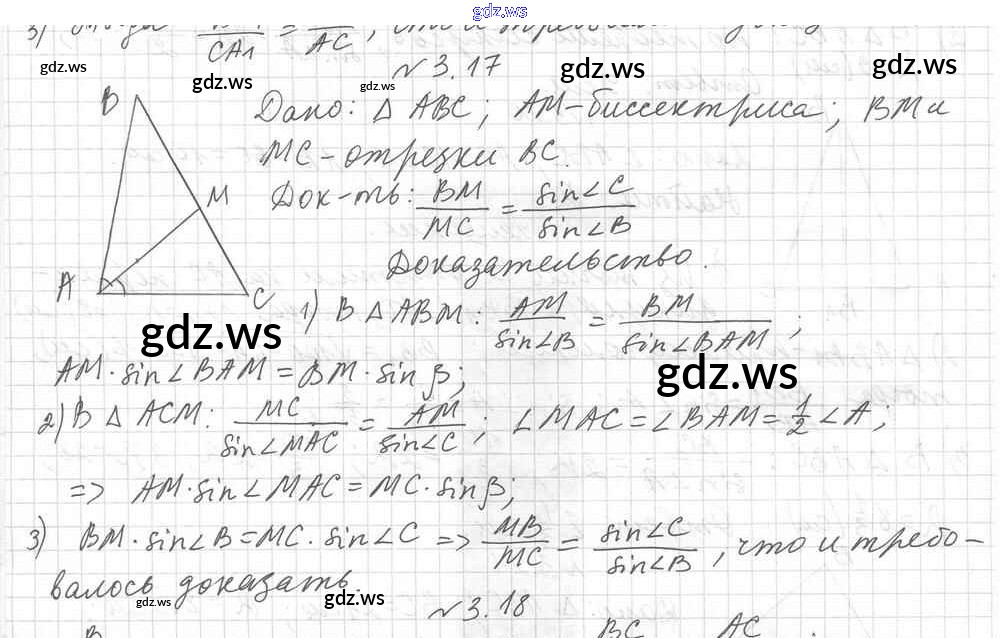 gdz.ws
3) CA1 = AC, что и требовалось
gdz.ws gdz.ws gdz.ws gdz.ws gdz.ws
№ 3.17
Дано: △ ABC; AM-биссектриса; BM и
MC-отрезки BC.
Док-ть: BM/MC = sin∠C/sin∠B
Доказательство.
B M A C
1) В △ ABM: AM/sin∠B = BM/sin∠BAM;
gdz.ws
AM·sin∠BAM = BM·sin β;
gdz.ws
2) В △ ACM: MC/sin∠MAC = AM/sin∠C; ∠MAC = ∠BAM = 1/2 ∠A;
=> AM·sin∠MAC = MC·sin β;
3) BM·sin∠B = MC·sin∠C => MB/MC = sin∠C/sin∠B, что и требо-
валось доказать.
gdz.ws gdz.ws gdz.ws
№ 3.18
B BC AC